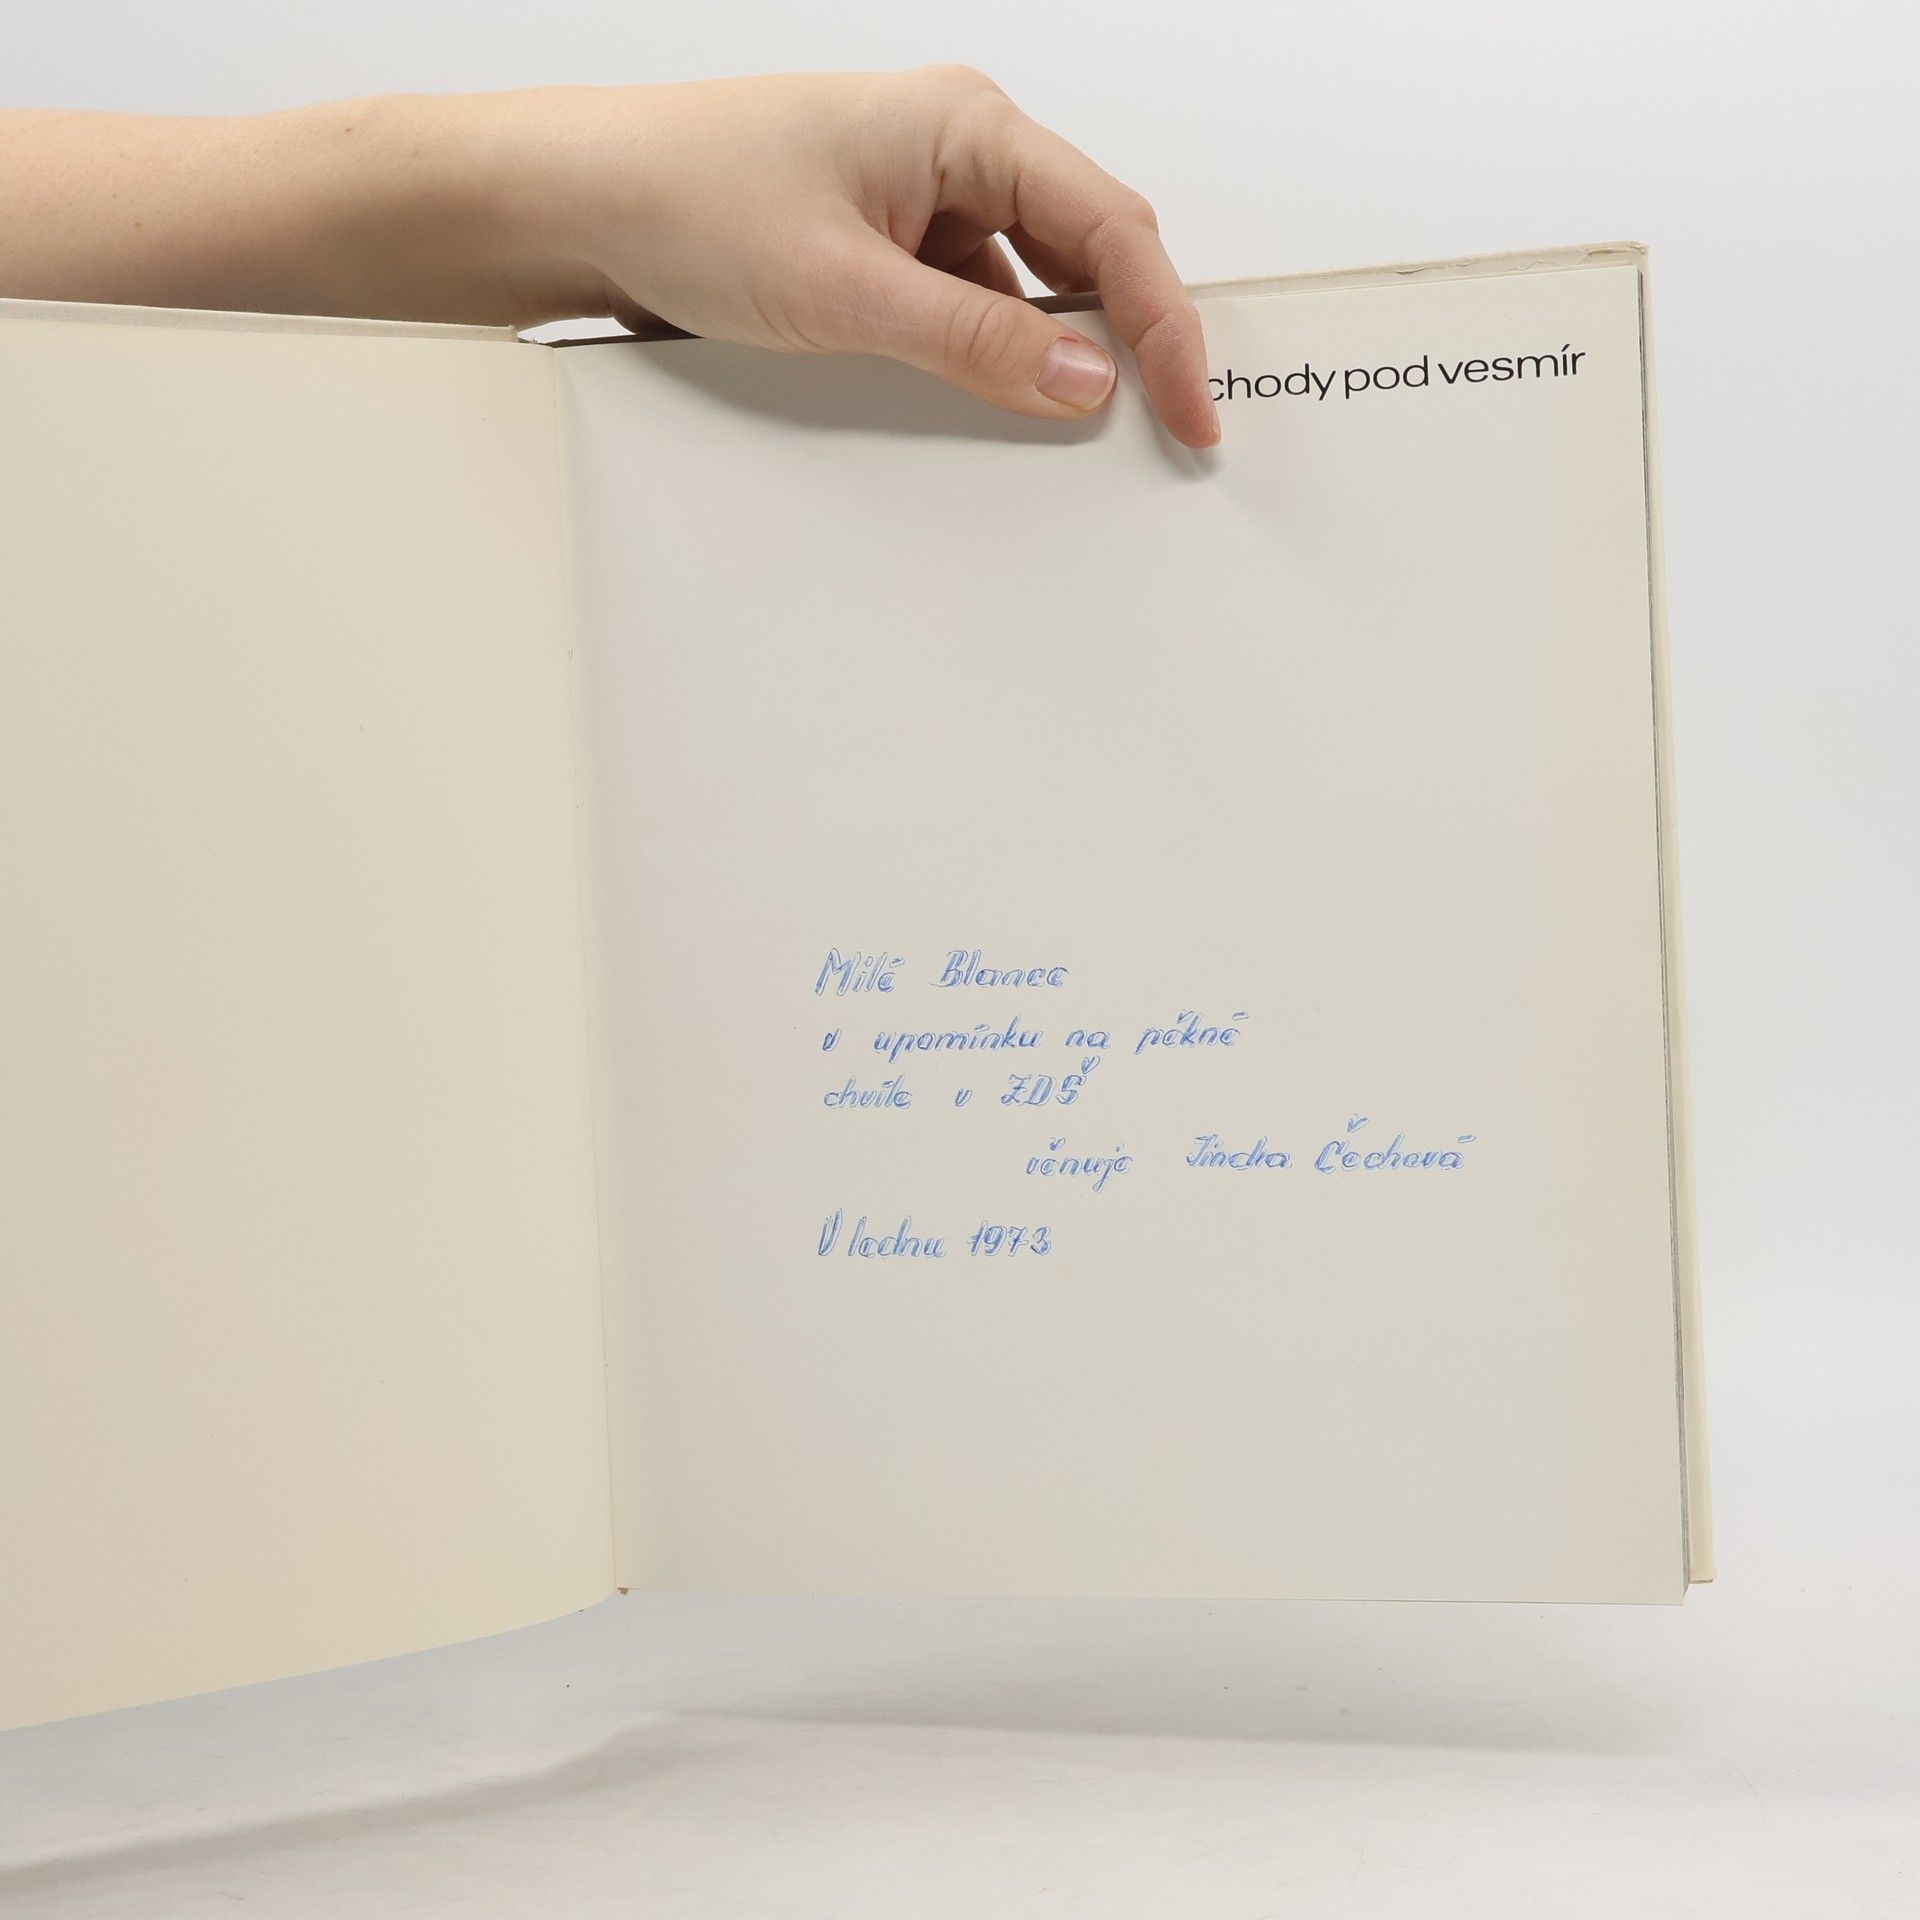 chody pod vesmír
Milé Blance
v upomínku na pěkné
chvíle v ZDŠ
věnuje Jindra Čechová
V lednu 1973